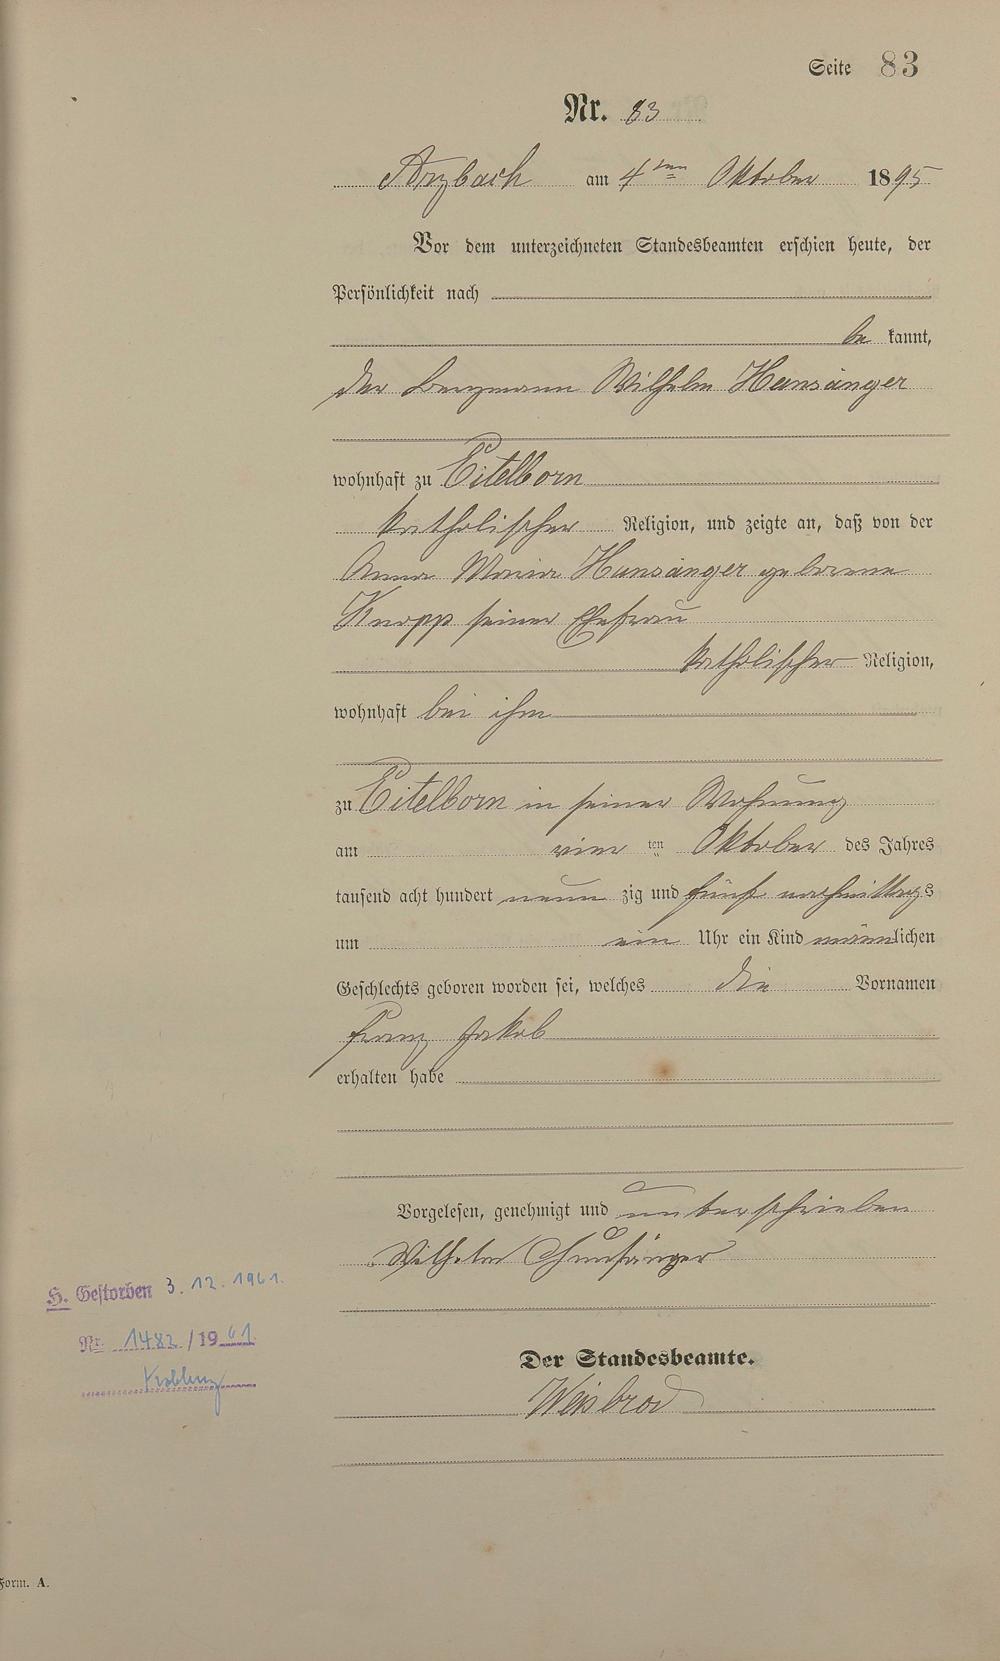 Seite 83
Nr. 83
Arzbach am 4ten Oktober 1895
Vor dem unterzeichneten Standesbeamten erschien heute, der
Persönlichkeit nach
be kannt,
der Bergmann Wilhelm Hunsänger
wohnhaft zu Eitelborn
katholischer Religion, und zeigte an, daß von der
Anna Maria Hunsänger geborene
Knopp seiner Ehefrau
katholischer Religion,
wohnhaft bei ihm
zu Eitelborn in seiner Wohnung
am vier ten Oktober des Jahres
tausend acht hundert neun zig und fünf nachmittags
um ein Uhr ein Kind männlichen
Geschlechts geboren worden sei, welches die Vornamen
Franz Jakob
erhalten habe
Vorgelesen, genehmigt und unterschrieben
Wilhelm Hunsänger
H. Gestorben 3.12.1961.
Nr. 1482/1961.
Koblenz
Der Standesbeamte.
Weisbrod
Form. A.